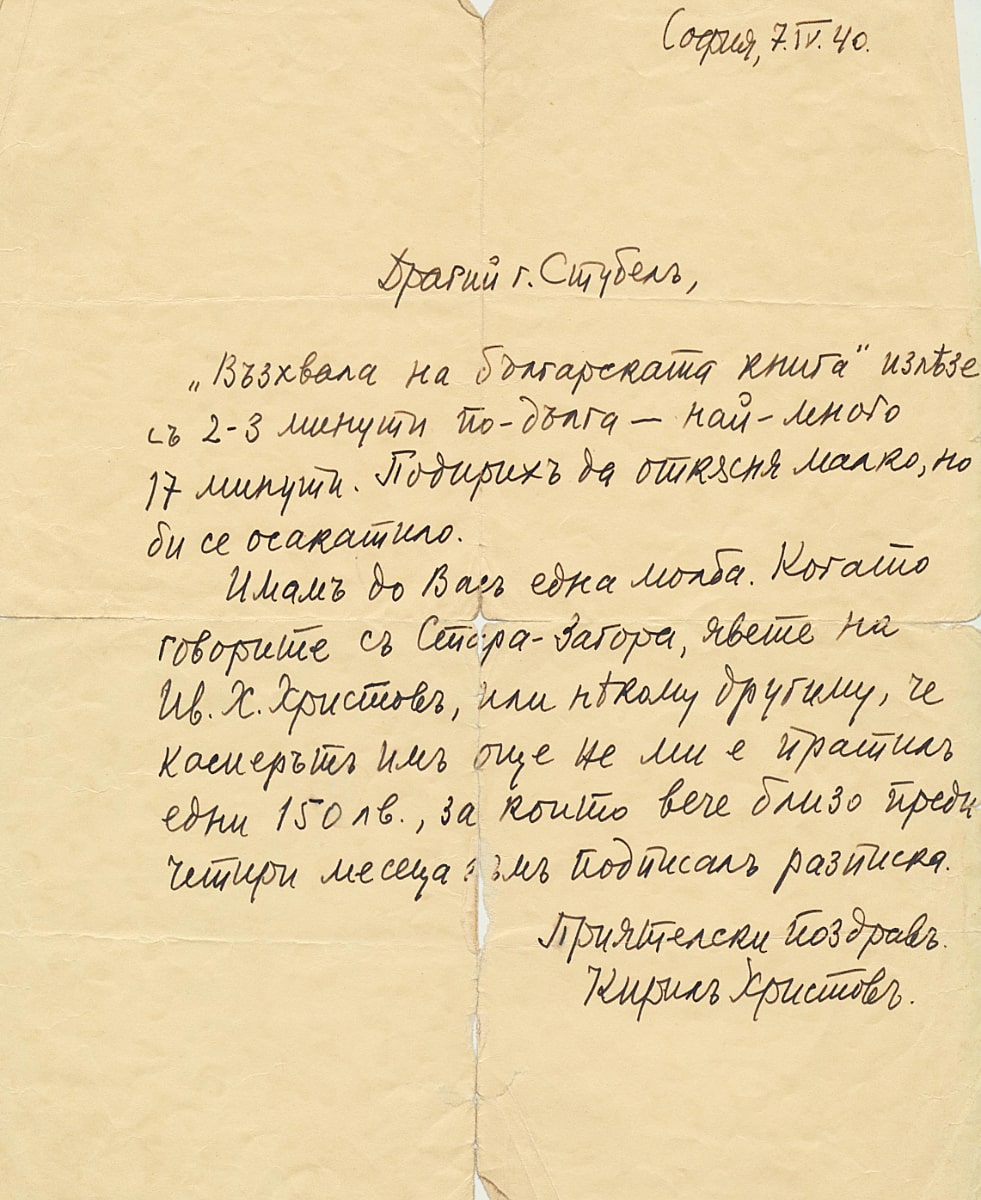 София, 7.IV.40.
Драгий г. Стубелъ,
„Възхвала на българската книга" излѣзе
съ 2-3 минути по-дълга — най-много
17 минути. Подирихъ да откѫсня малко, но
би се осакатило.
Имамъ до Васъ една молба. Когато
говорите съ Стара-Загора, явете на
Ив. Х. Христовъ, или нѣкому другиму, че
касиерътъ имъ още не ми е пратилъ
едни 150 лв., за които вече близо преди
четири месеца съмъ подписалъ разписка.
Приятелски поздравъ.
Кирилъ Христовъ.